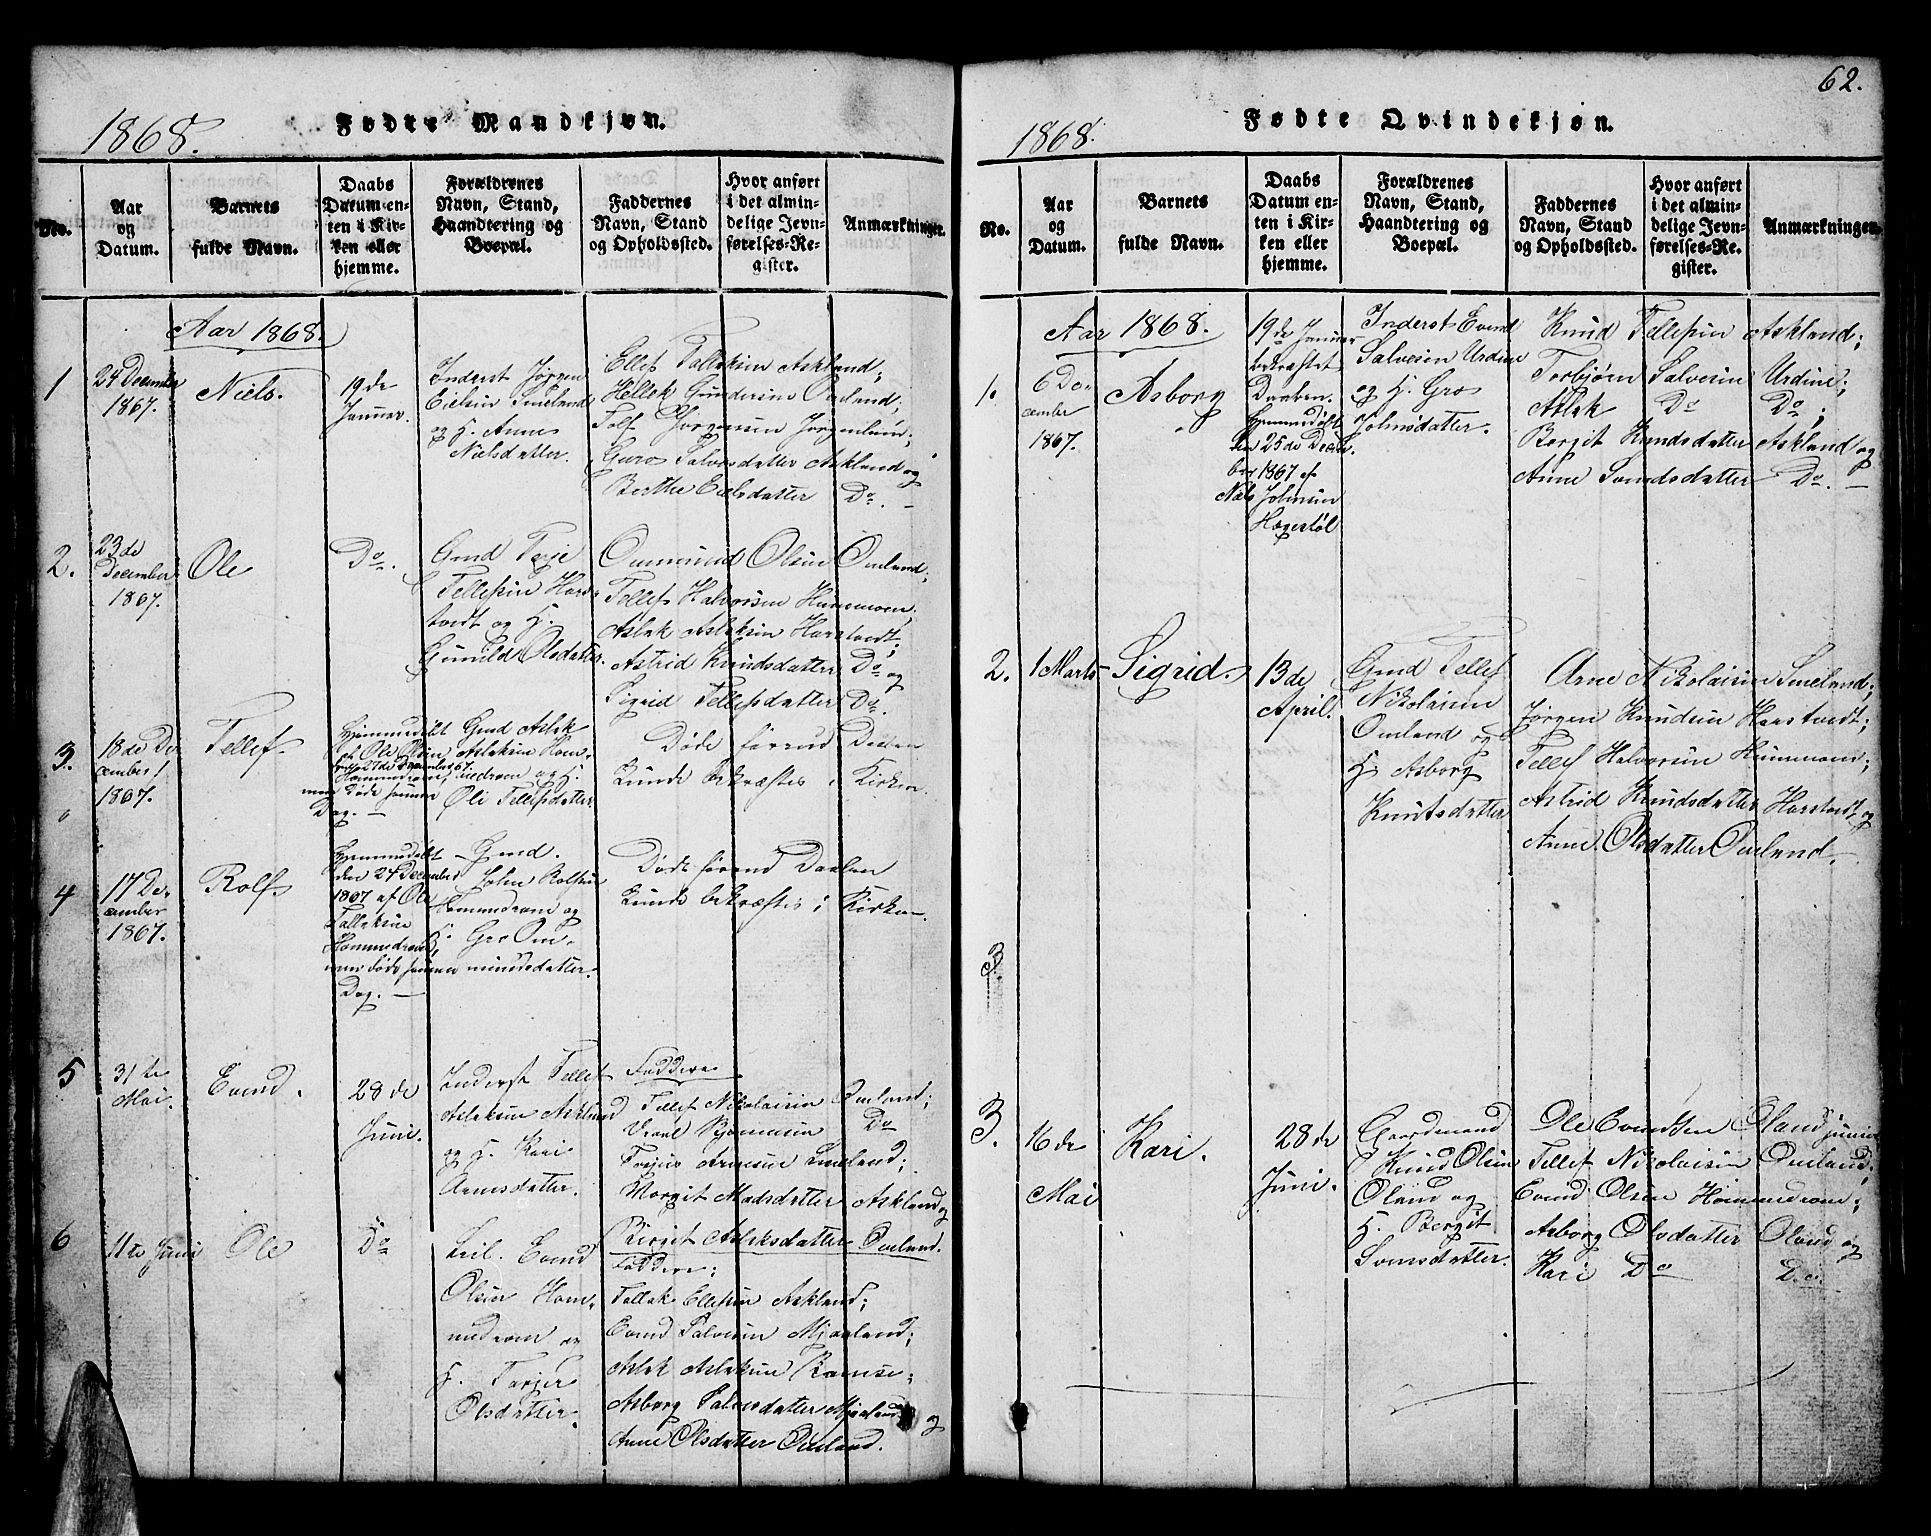 1868.
Fødte Mandkjøn.
No.
Aar og Datum.
Barnets fulde Navn.
Daabs Datum enten i Kirken eller hjemme.
Forældrenes Navn, Stand, Haandtering og Boepæl.
Faddernes Navn, Stand og Opholdssted.
Hvor anført i det almindelige Jevnførelses-Register.
Anmærkninger.
Aar 1868.
1
24 December
1867.
Niels.
19de
Januar.
Inderst Jørgen
Eielsen Smeland
og H. Anne
Nielsdatter.
Ellef Tallaksen Askland;
Hellek Gundersen Omland;
Tolf Jørgensen Jørgenlund;
Guro Salvesdatter Askland og
Berthe Eielsdatter Do. –
2.
23de
December
1867.
Ole
Do.
Gmd Terje
Tellefsen Har-
stvedt og H.
Gunild Olsdatter.
Ommund Olsen Omland;
Tellef Halvorsen Hummoen;
Aslak Aslaksen Harstvedt;
Astrid Knudsdatter Do og
Sigrid Tellefsdatter Do.
3.
18de De-
cember
1867.
Tellef
Hjemmedøbt
af Ole Olsen
27de December 67.
men døde samme
Dag. —
Gmd Aslak
Aslaksen Hom-
medrom og H.
Oli Tellefsdatter.
Døde førend Daaben
kunde bekræftes i Kirken.
4
17 De-
cember
1867.
Rolf
Hjemmedøbt
den 24 December
1867 af Ole
Tallaksen
Hommedrom,
men døde samme
Dag. —
Gmd.
John Rolfsen
Hommedrom og
H. Gro Om-
mundsdatter.
Døde førend Daaben
kunde bekræftes i Kirken.
5
31te
Mai.
Evend.
28de
Juni.
Inderst Tellef
Aslaksen Askland
og H. Kari
Arnesdatter.
Faddere
Tellef Nikolaisen Omland;
Do
Torjus Arnesen Smeland;
Margit Madsdatter Askland og
Birgit Aslaksdatter Omland.
6
11te Juni
Ole
Do
Leil. Evend
Olsen Hom-
medrom og
H. Torjer
Olsdatter.
Faddere:
Tallak Ellefsen Askland;
Evend Salvesen Mjaaland;
Aslak Aslaksen Ramse;
Asborg Salvesdatter Mjaaland og
Anne Olsdatter Omland.
62.
1868.
Fødte Qvindekjøn.
No.
Aar og Datum.
Barnets fulde Navn.
Daabs Datum enten i Kirken eller hjemme.
Forældrenes Navn, Stand, Haandtering og Boepæl.
Faddernes Navn, Stand og Opholdssted.
Hvor anført i det almindelige Jevnførelses-Register.
Anmærkninger.
Aar 1868.
1.
6 De-
cember
1867.
Asborg
19de Januar
bekræftet
Daaben.
Hjemmedøbt
den 25de Decem-
ber 1867 af
Niels Johnsen
Hagestøl
Inderst Evend
Salvesen Urdine
og H. Gro
Johnsdatter.
Knud Tellefsen Askland;
Torbjørn Salvesen Urdine;
Aslak Do Do;
Bergit Knudsdatter Askland og
Anne Svendsdatter Do. –
2.
1 Marts
Sigrid.
13de
April.
Gmd Tellef
Nikolaisen
Omland og
H Asborg
Knutsdatter
Arne Nikolaisen Smeland;
Jørgen Knudsen Harstvedt;
Tellef Halvorsen Hummoen;
Astrid Knudsdatter Harstvedt og
Anne Olsdatter Omland.
3.
16de
Mai
Kari.
28de
Juni.
Gaardmand
Knud Olsen
Oland og
H. Bergit
Svensdatter.
Ole Evendsen Oland junior
Tellef Nikolaisen Omland;
Evend Olsen Hommedrom;
Asborg Olsdatter Oland og
Kari Do Do.